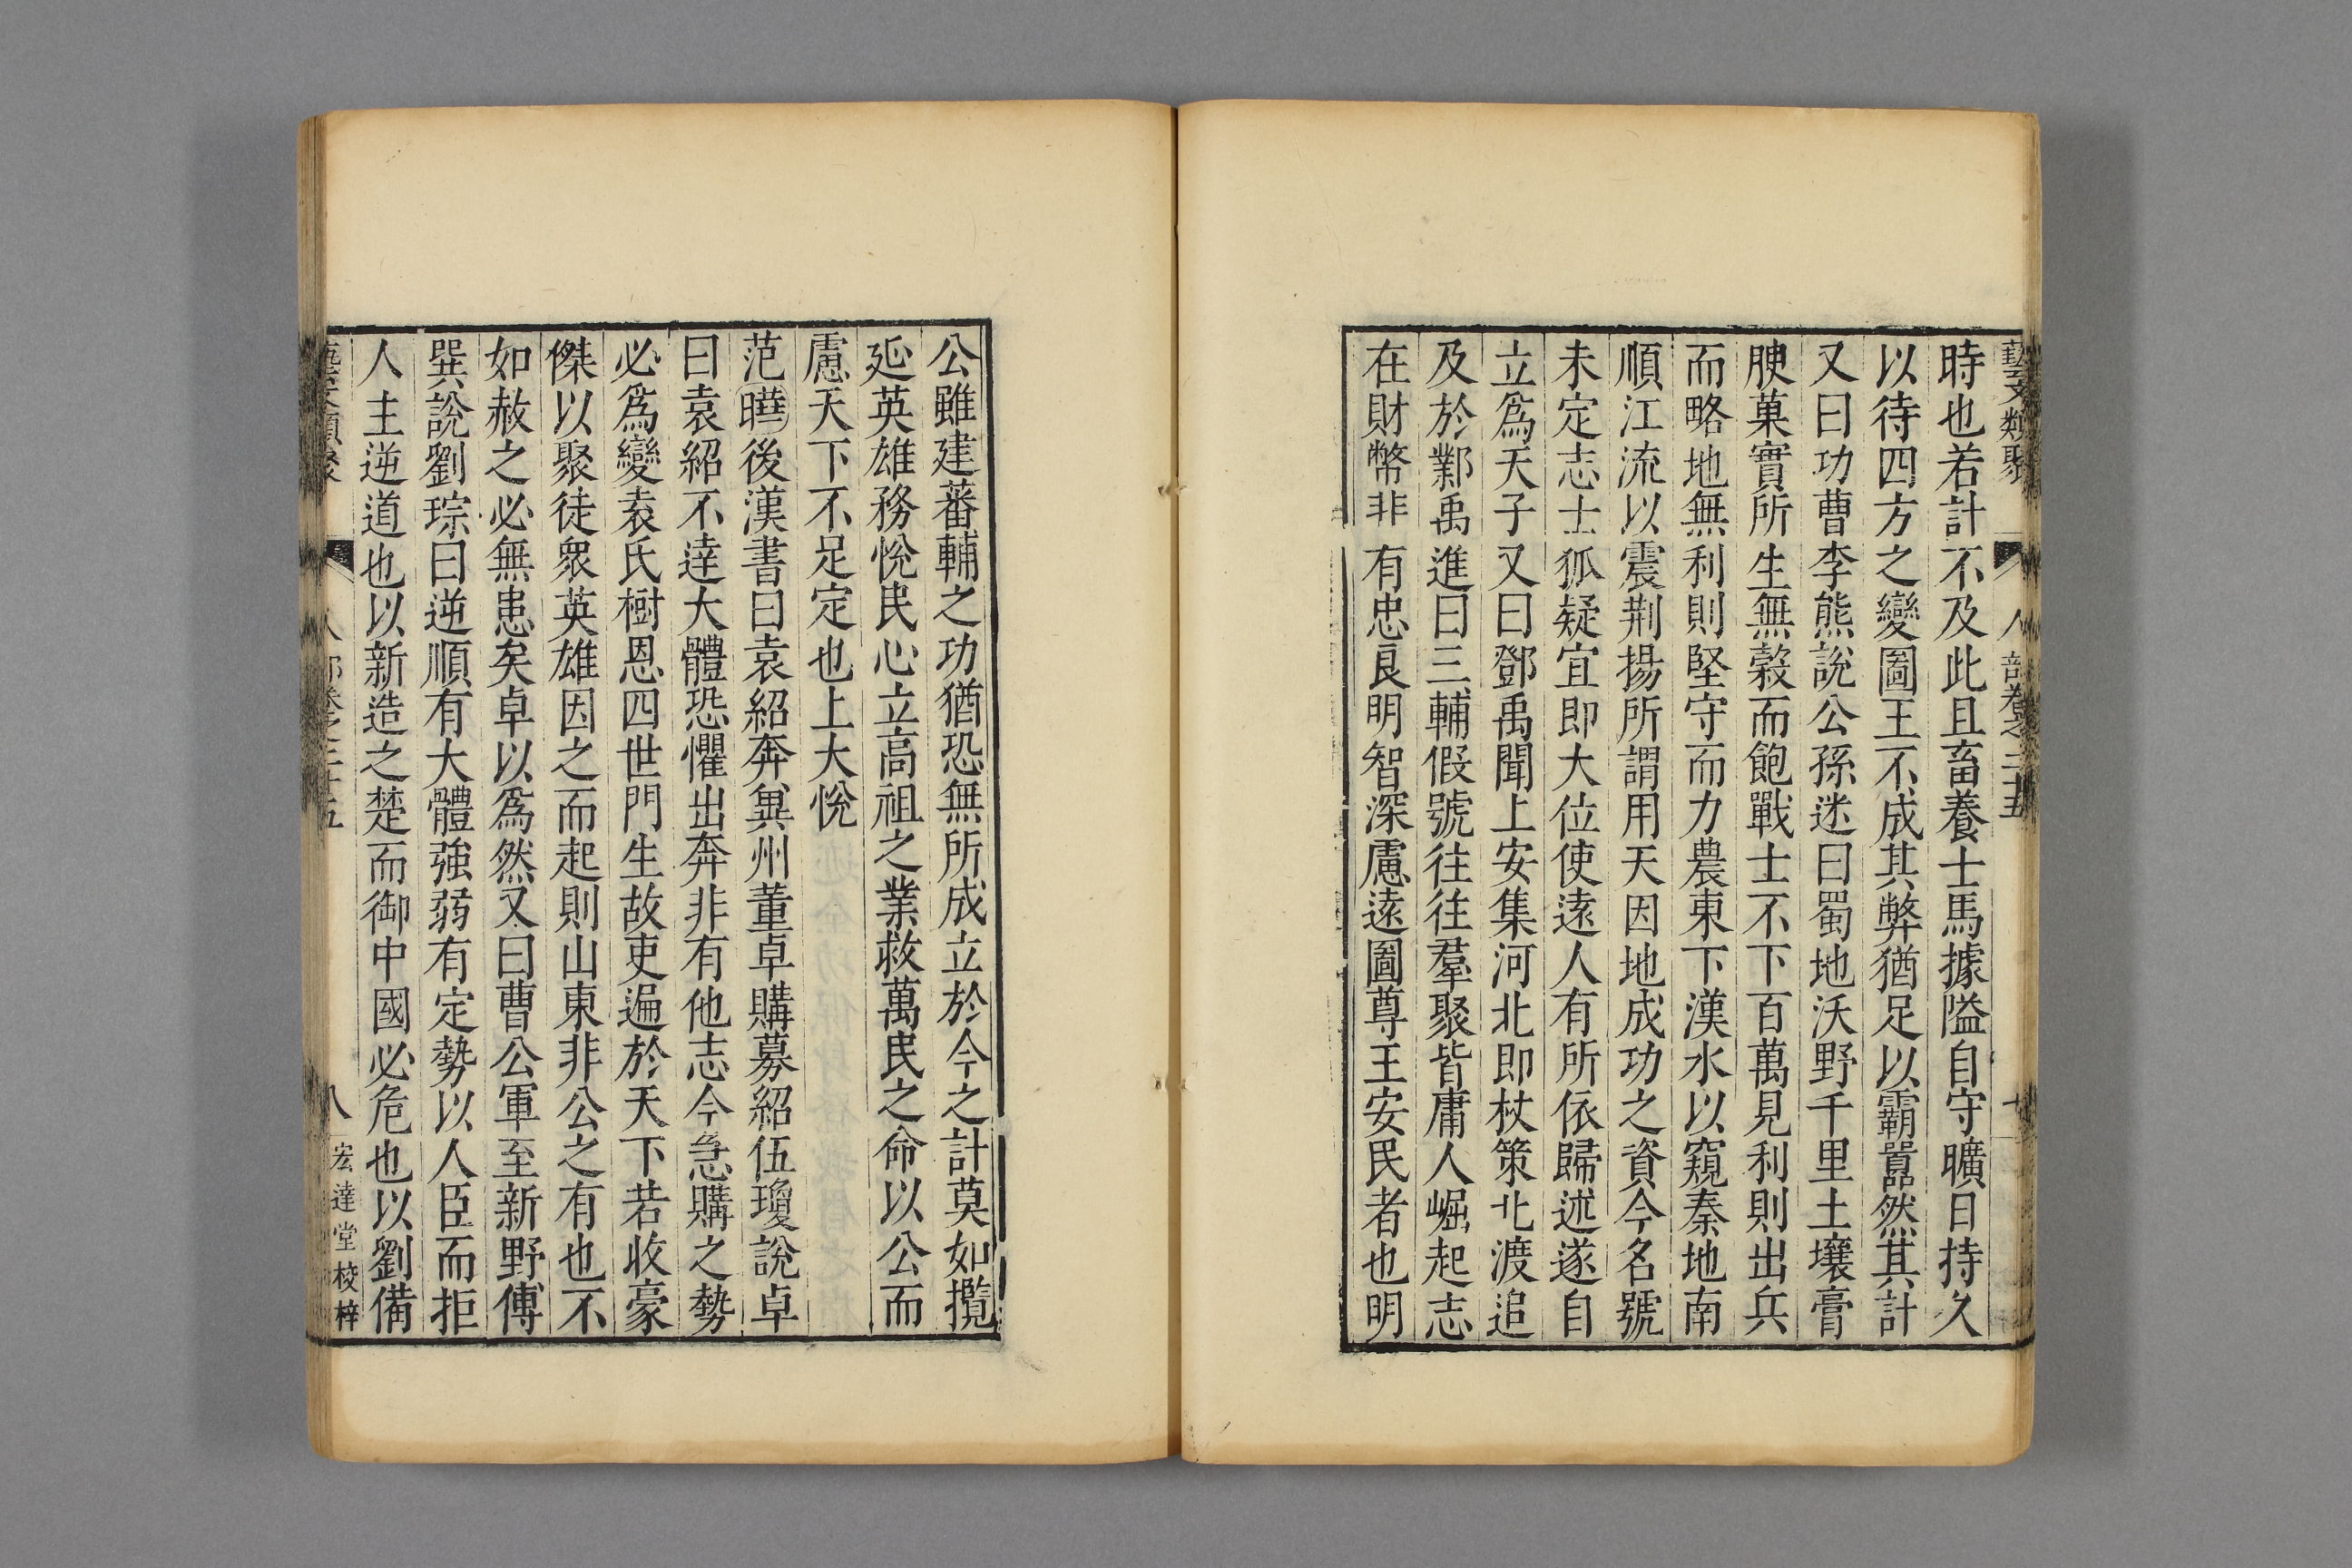 藝文類聚 人部卷之二十五 七
時也若計不及此且畜養士馬據隘自守曠日持久
以待四方之變圖王不成其弊猶足以霸嚚然其計
又曰功曹李熊說公孫述曰蜀地沃野千里土壤膏
腴菓實所生無穀而飽戰士不下百萬見利則出兵
而略地無利則堅守而力農東下漢水以窺秦地南
順江流以震荆揚所謂用天因地成功之資今名號
未定志士狐疑宜即大位使遠人有所依歸述遂自
立爲天子又曰鄧禹聞上安集河北即杖策北渡追
及於鄴禹進曰三輔假號往往羣聚皆庸人崛起志
在財幣非有忠良明智深慮遠圖尊王安民者也明
公雖建蕃輔之功猶恐無所成立於今之計莫如攬
延英雄務悅民心立高祖之業救萬民之命以公而
慮天下不足定也上大悅
范曄後漢書曰袁紹奔兾州董卓購募紹伍瓊說卓
曰袁紹不達大體恐懼出奔非有他志今急購之勢
必爲變袁氏樹恩四世門生故吏遍於天下若收豪
傑以聚徒衆英雄因之而起則山東非公之有也不
如赦之必無患矣卓以爲然又曰曹公軍至新野傅
巽說劉琮曰逆順有大體強弱有定勢以人臣而拒
人主逆道也以新造之楚而御中國必危也以劉備
藝文類聚 人部卷之二十五 八 宏達堂校梓